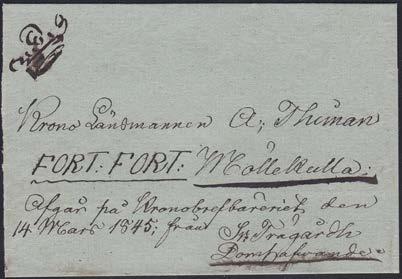 Krono Länsmannen A; Thunan
FORT: FORT: Möllekulla:
Afgår på Kronobrefbäreriet den
14 Mars 1845; från
Trägårdh